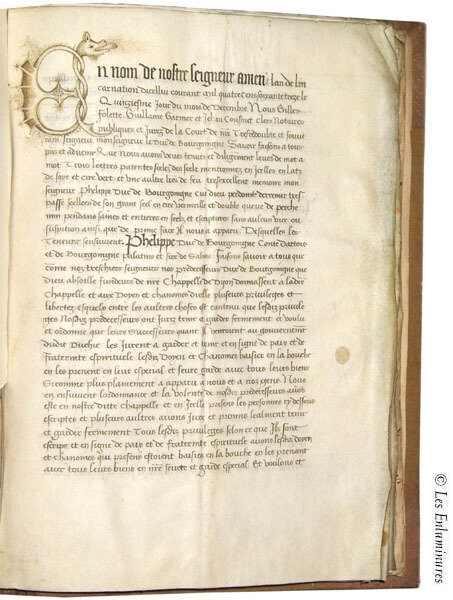 En nom de nostre seigneur amen lan de lin
carnation dicellui courant mil quatre cens soixante treze le
Quinziesme Jour du mois de Decembre Nous Gilles
Folette, Guillame Garnier et Jehan Cousinot clers Notaires
publiques et Jurez de la Court de mre
seigneur monseigneur le Duc de Bourgoingne Savoir faisons a tous
Que nous avons veues tenues et diligemment leues de mot a
mot Trois lettres patentes seelees mentionnez en scelles en latz
de soye et cire vert et une aultre lres de feu tresexcellent memoire mon
seigneur Phelippe Duc de Bourgoingne cui dieu perdoint derrenier tres
passe seellees de son grant seel en cire vermeille et double queue de perche
min pendans saines et entieres en seelz et escriptures sans aulcun vice ou
suspition ainsi que de prime face Il nous a apparu Desquelles les
Teneurs sensuivent Phelippe Duc de Bourgoingne Conte Dartois
et de Bourgoingne palatins et sire de Salins Faisons savoir a tous que
come noz treschiers seigneurs noz predecesseurs Ducs de Bourgoingne que
Dieu absoille fundeurs de nre Chappelle de Dijon donnassent a ladicte
Chappelle et aux Doyen et chanoines dicelle plusieurs privileges et
libertez esquelx entre les aultres choses est contenu que lesdiz privile
ges Nosdiz predecesseurs ont Jurez tenir et garder fermement et voulu
et ordonne que leurs Successeurs quant Ilz venront au gouvernement
dudit Duchie les Jurent a garder et tenir et en signe de paix et de
fraternite espirituele lesdiz Doyen et Chanoines baisier en la bouche
en les prenent en leur especial et seure garde avec tous leurs biens
Sicomme plus plainement a apparu a nous et a noz gens Nous
en ensuivent lordonnance et la volente de nosdiz predecesseurs avons
este en nostre dite chappelle et en Icelle presens les personnes cy dessoubz
escriptes et plusieurs aultres avons Jure et promis lealment tenir
et garder fermement Tous lesdiz privileges selon ce que Ilz sont
escripz et en signe de paix et de fraternite espirituele avons lesdiz doyen
et chanoines qui presens estoient baisies en la bouche en les prenant
avec tous leurs biens en nre seurte et garde especial Et voulons et
© Les Enluminures